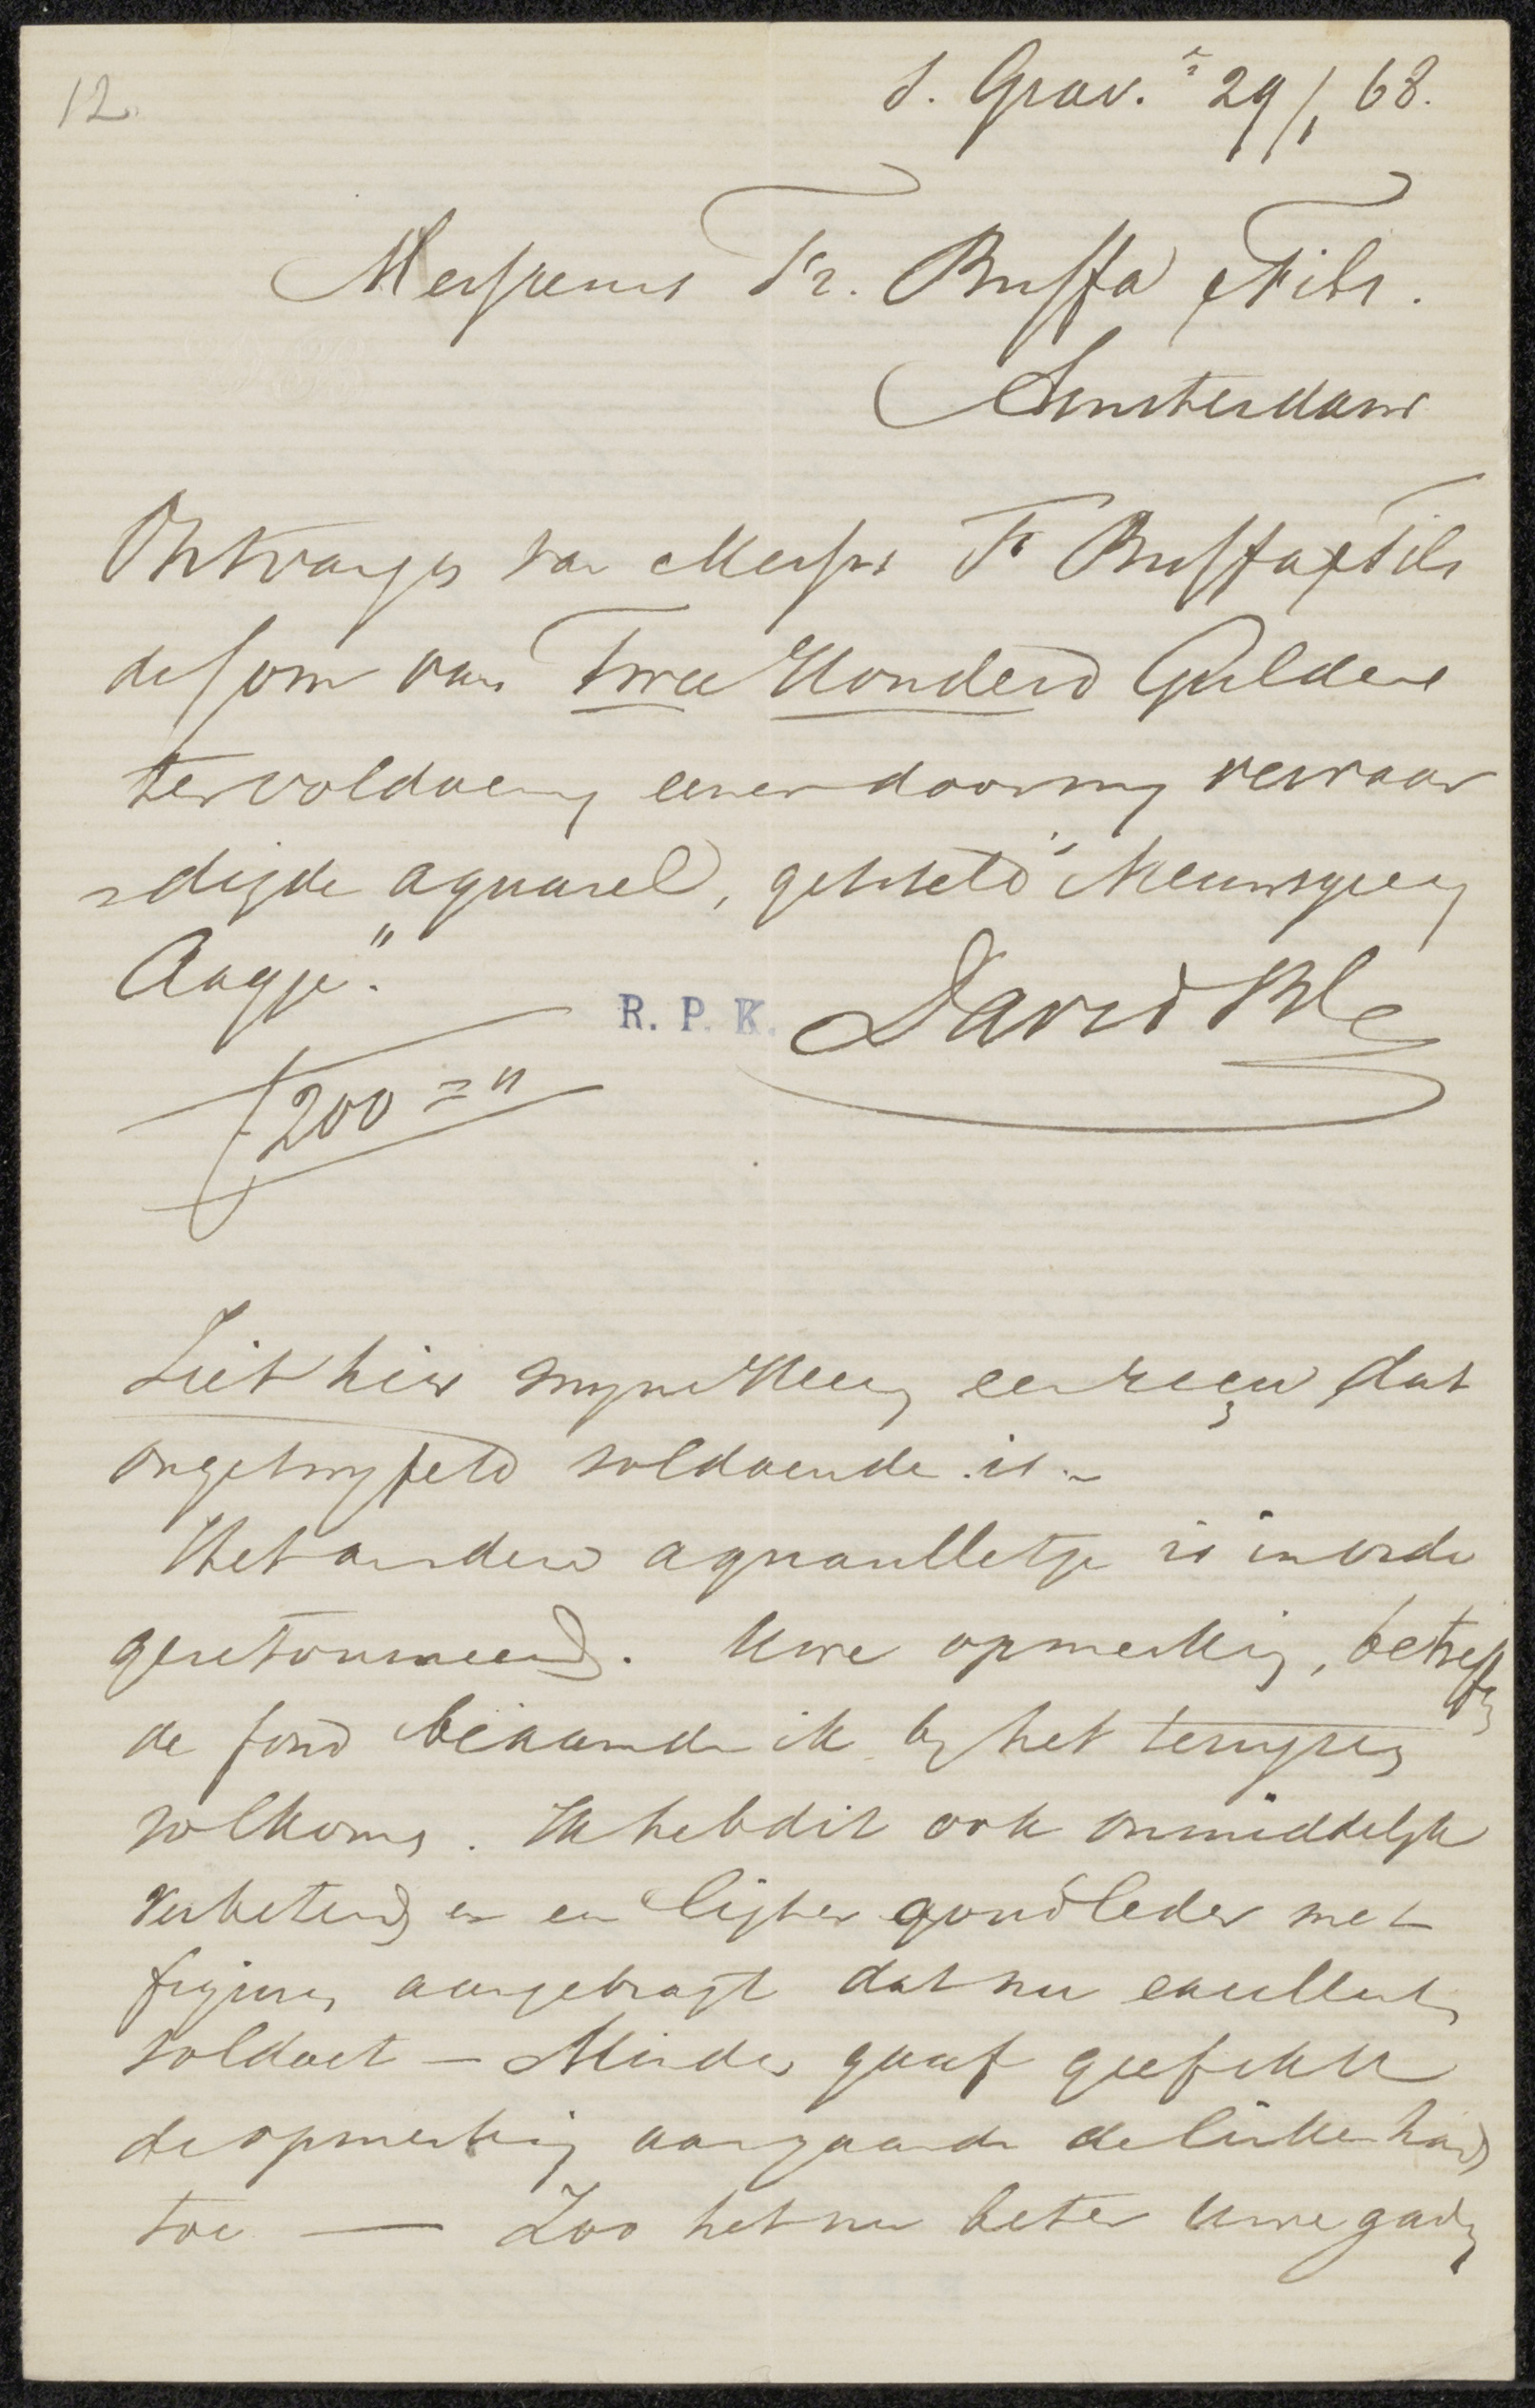 12.
s. Grav. 29/1 68.
Messieurs Fr. Buffa & Fils.
Amsterdam
Ontvangen van Messrs Fr Buffa & Fils
de som van Twee Honderd Gulden
ter voldoening eener door my vervaar
digde aquarel, getiteld "Nieuwsgierig
Aagje".
R. P. K. David Bles
f 200 = "
Ziet hier myne Heeren een reçu dat
ongetwyfeld voldoende is.
Het andere aquarelletje is in orde
geretourneerd. Uwe opmerking, betreffen
de fond beaamde ik by het terugzien
volkomen. Ik heb dit ook onmiddelyk
verbeterd en een ligter goudleder met
figuren aangebragt dat nu excellent
voldoet — Minder gaaf geef ik U
de opmerking aangaande de linkerhand
toe — Zoo het nu beter Uwe gading